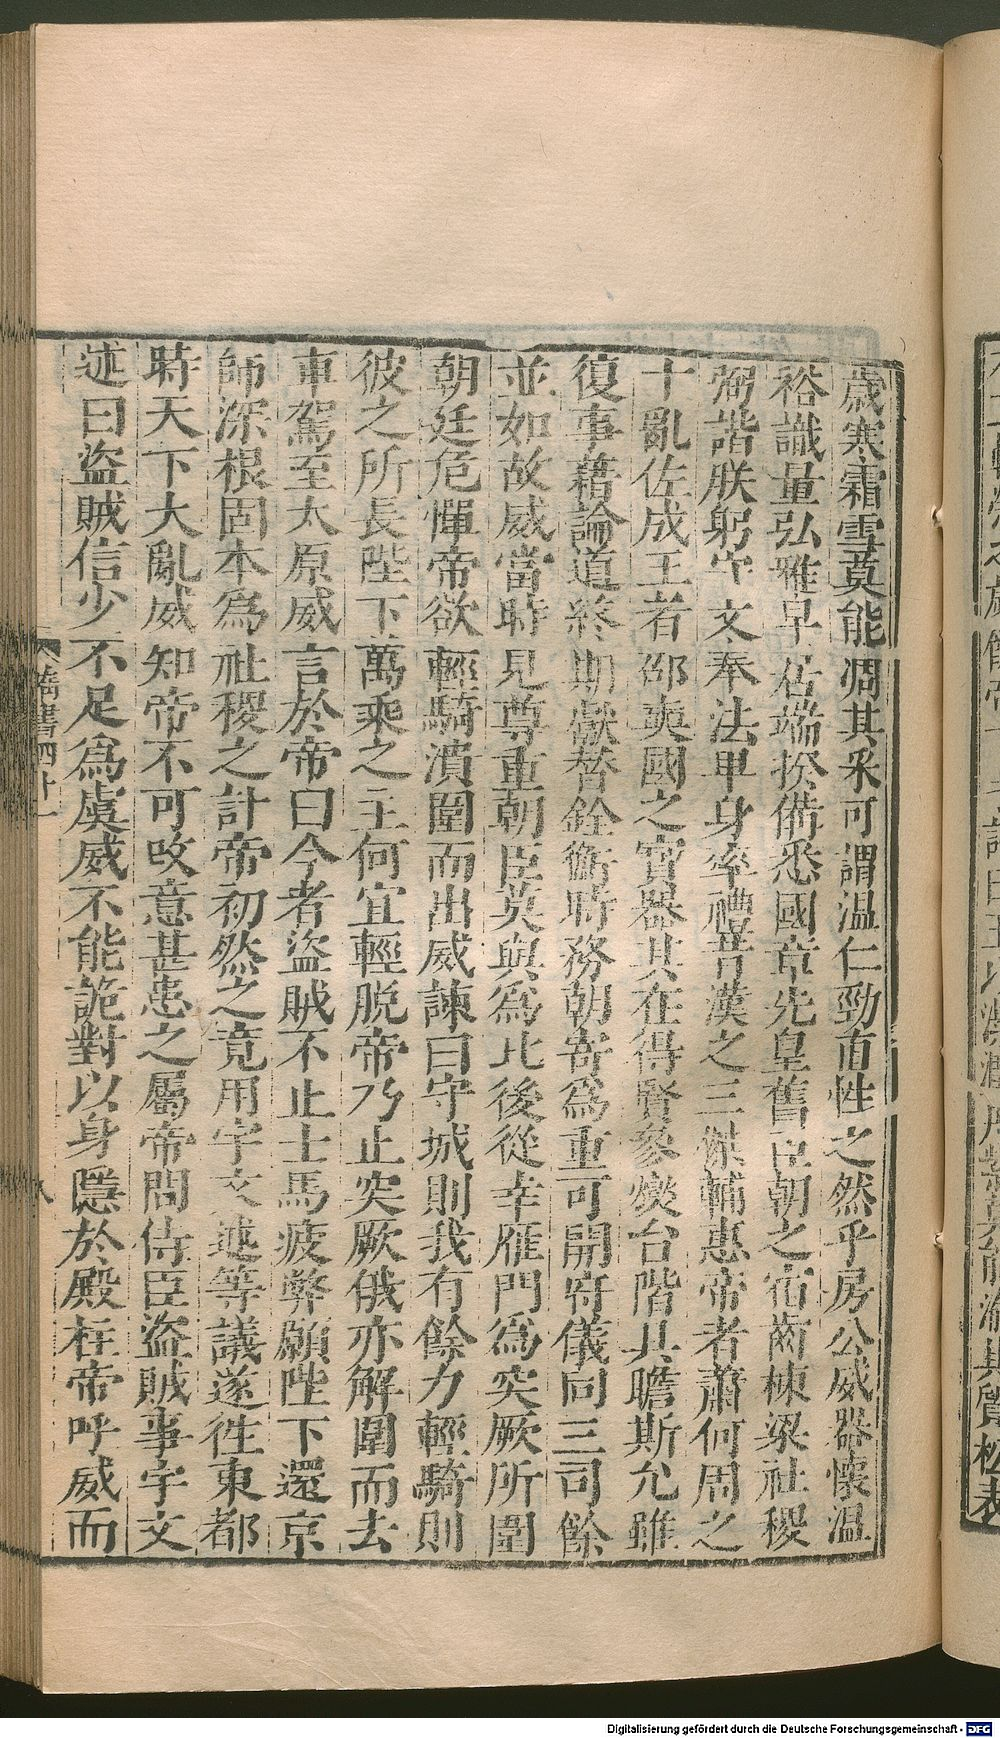 歲寒霜雪莫能凋其采可謂温仁勁直性之然乎房公威器懷温
裕識量弘雅早居端揆備悉國章先皇舊臣朝之宿齒棟梁社稷
弼諧朕躬守文奉法卑身率禮昔漢之三傑輔惠帝者蕭何周之
十亂佐成王者邵奭國之寶器其在得賢參燮台階具瞻斯允雖
復事藉論道終期獻替銓衡時務朝寄爲重可開府儀同三司餘
並如故威當時見尊重朝臣莫與爲比後從幸雁門爲突厥所圍
朝廷危憚帝欲輕騎潰圍而出威諫曰守城則我有餘力輕騎則
彼之所長陛下萬乘之主何宜輕脫帝乃止突厥俄亦解圍而去
車駕至太原威言於帝曰今者盜賊不止士馬疲弊願陛下還京
師深根固本爲社稷之計帝初然之竟用宇文述等議遂徃東都
時天下大亂威知帝不可攺意甚患之屬帝問侍臣盜賊事宇文
述曰盜賊信少不足爲虞威不能詭對以身隱於殿柱帝呼威而
隋書四十一
八
Digitalisierung gefördert durch die Deutsche Forschungsgemeinschaft - DFG